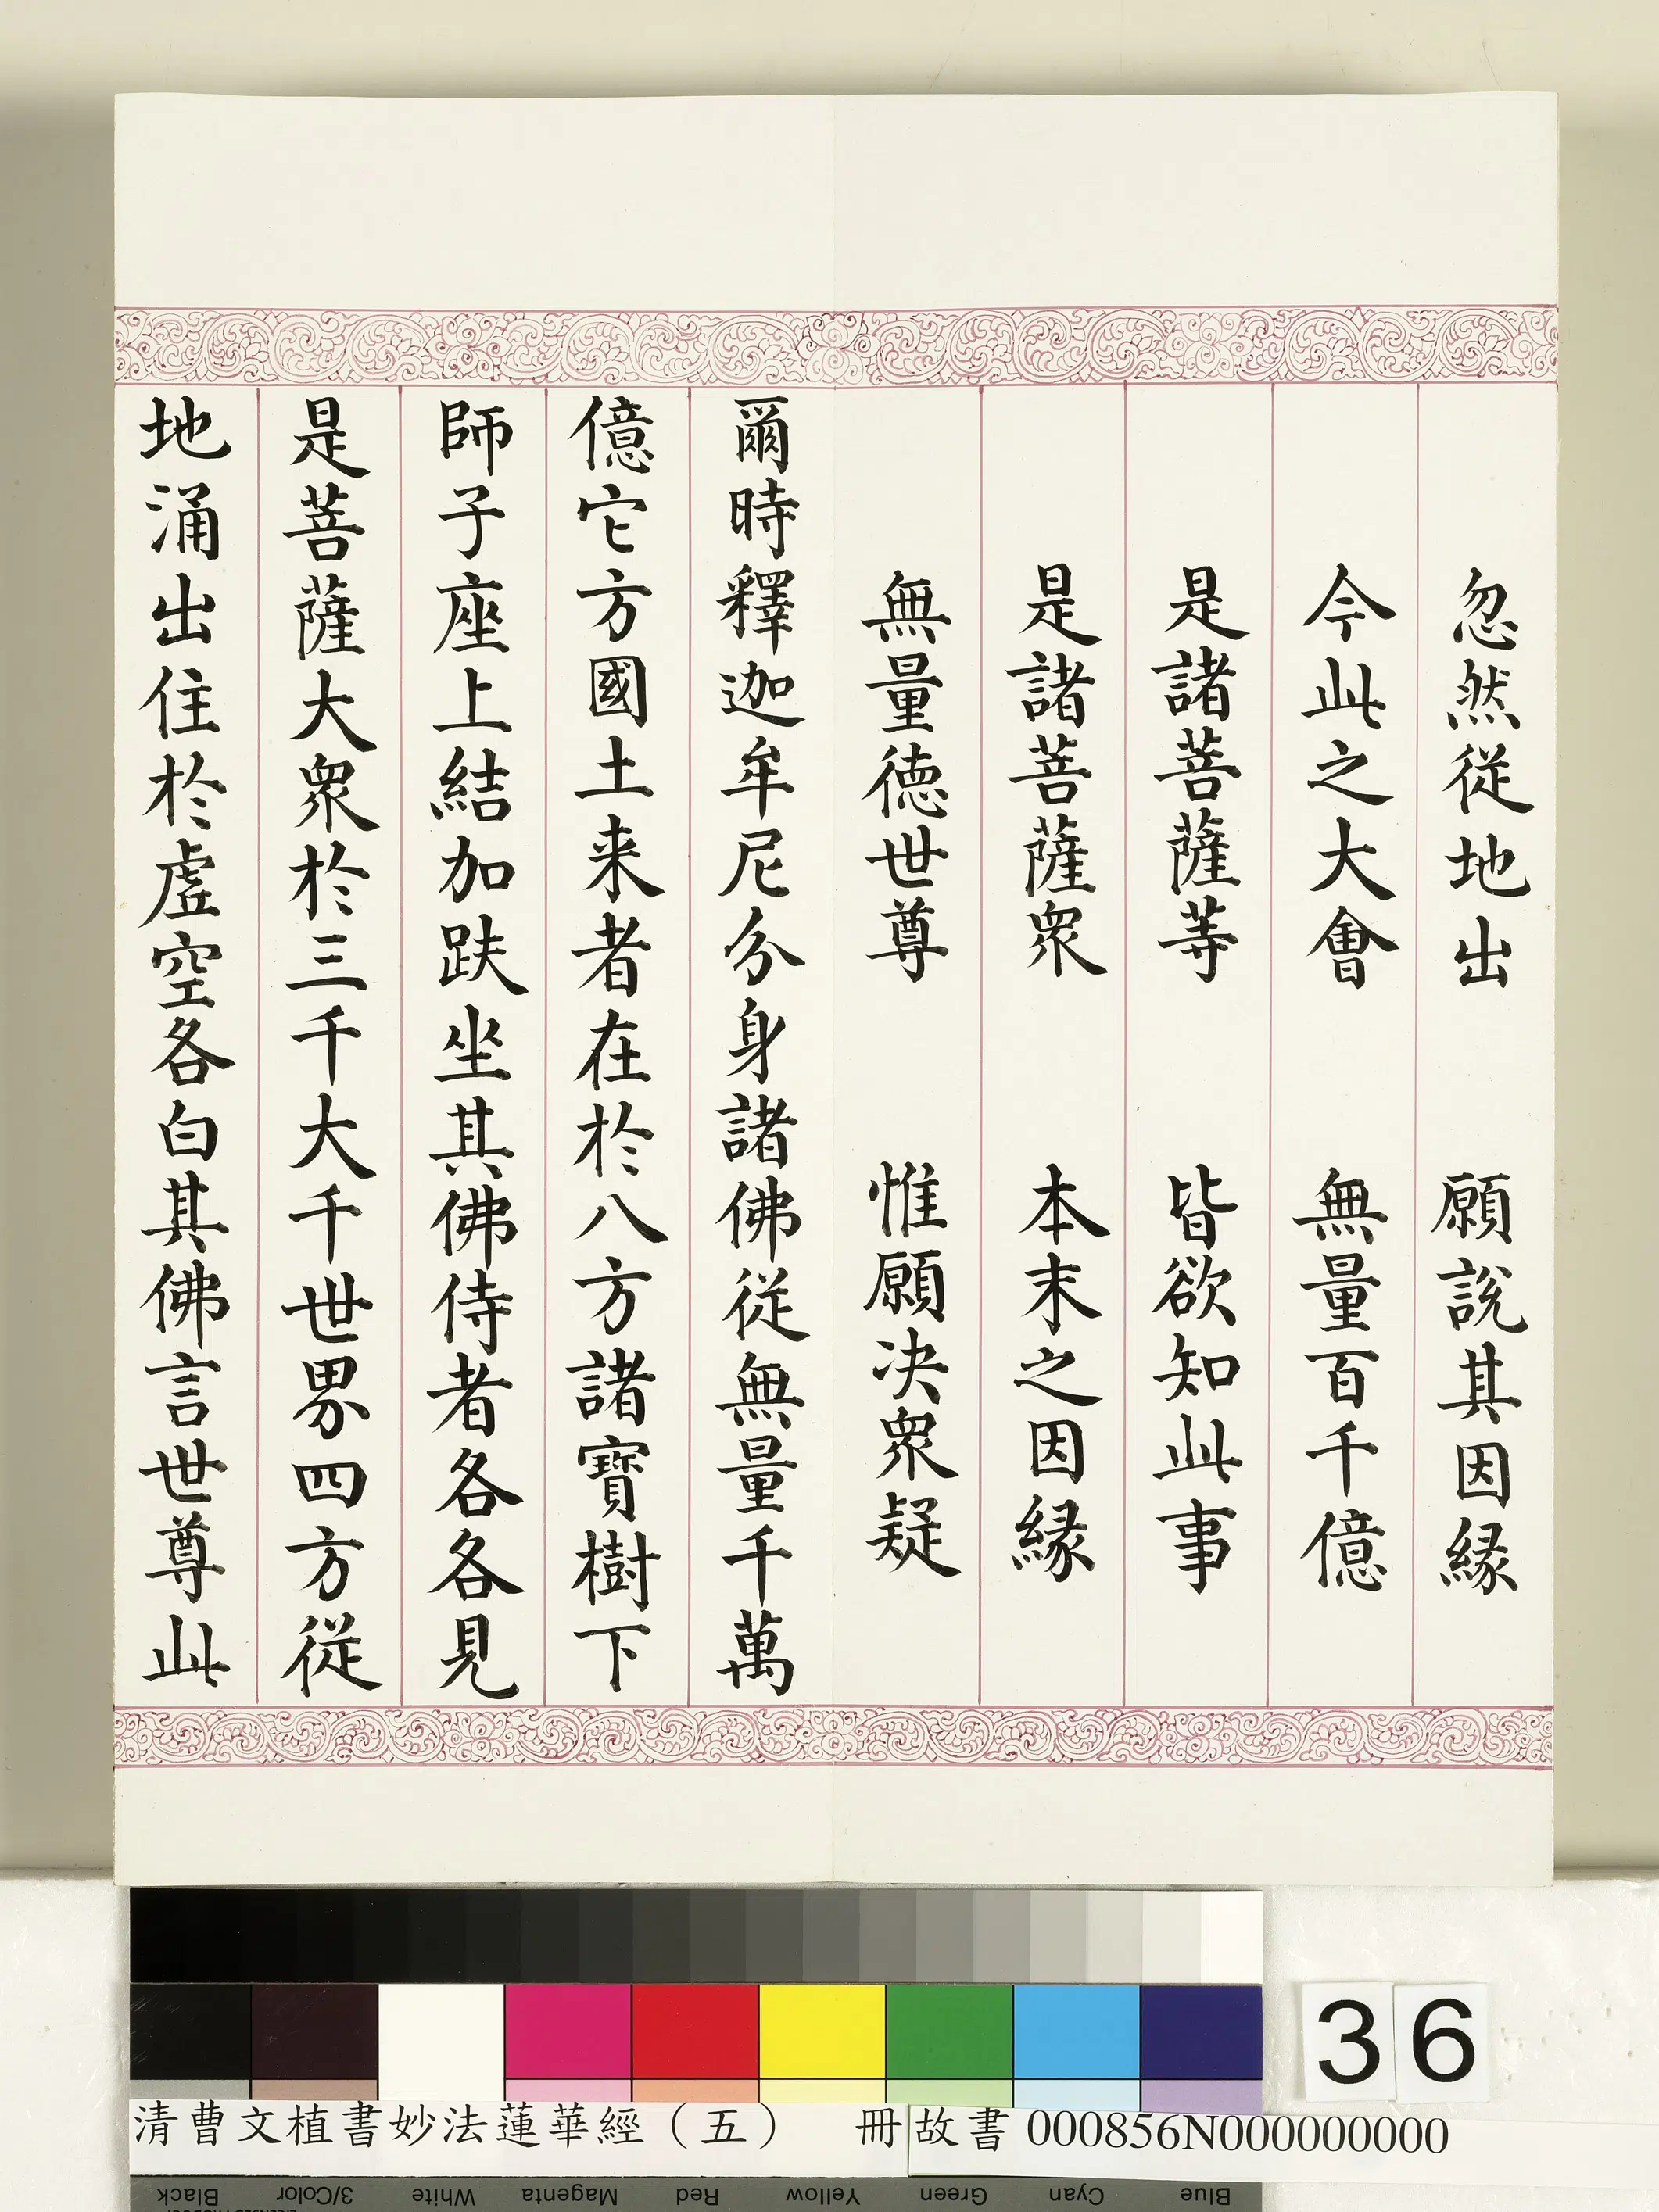 忽然從地出　願說其因緣
今此之大會　無量百千億
是諸菩薩等　皆欲知此事
是諸菩薩衆　本末之因緣
無量德世尊　惟願决衆疑
爾時釋迦牟尼分身諸佛從無量千萬
億它方國土来者在於八方諸寶樹下
師子座上結加趺坐其佛侍者各各見
是菩薩大衆於三千大千世界四方從
地涌出住於虛空各白其佛言世尊此
36
清曹文植書妙法蓮華經（五）　冊故書000856N000000000
Black 3/Color White Magenta Red Yellow Green Cyan Blue